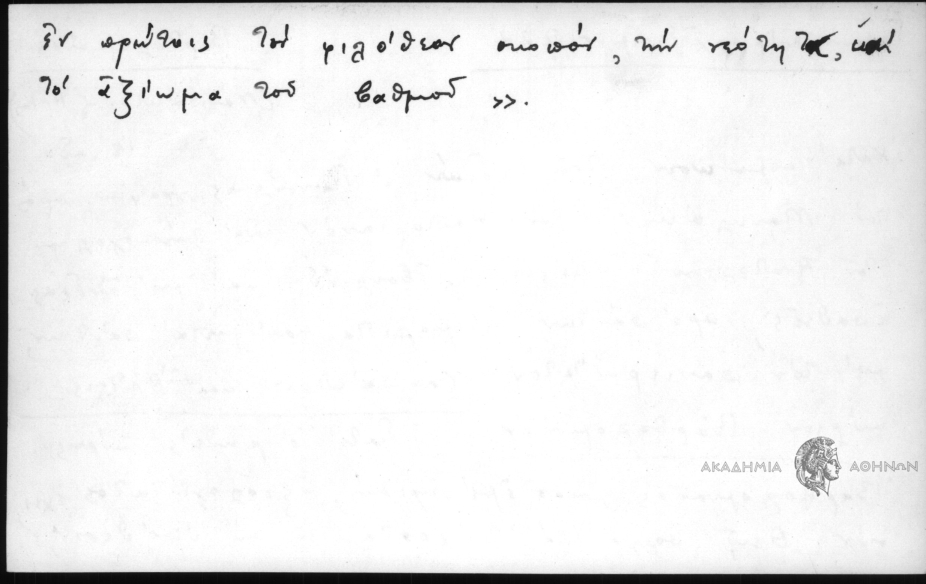 ἐν πρώτοις τὸν φιλόθεον σκοπόν, τὴν νεότητα, καὶ
τὸ ἀξίωμα τοῦ βαθμοῦ».
ΑΚΑΔΗΜΙΑ ΑΘΗΝΩΝ